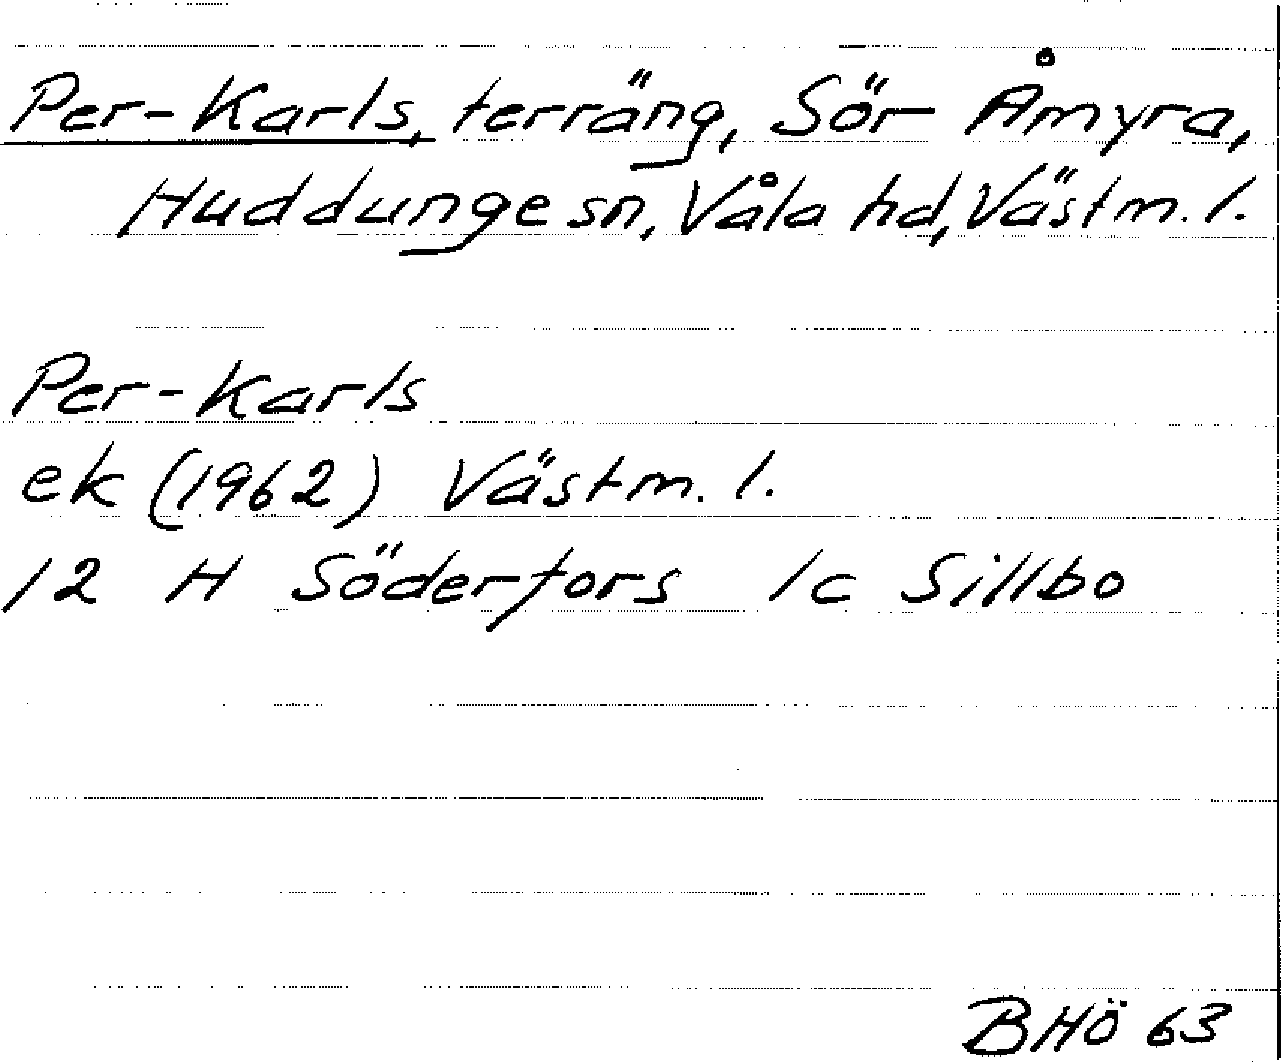 Per-Karls, terräng, Sör Åmyra,
Huddunge sn, Våla hd, Västm. l.
Per-Karls
ek (1962) Västm. l.
12 H Söderfors 1c Sillbo
BHÖ 63